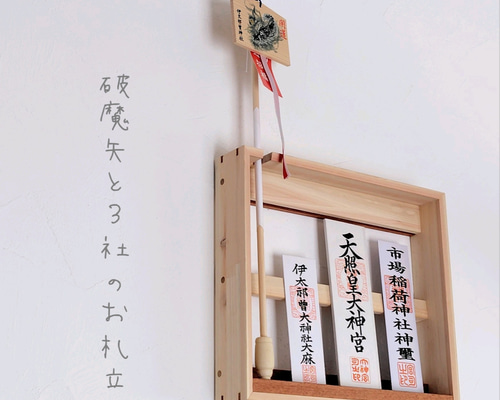 破魔矢と3社のお札立
市場稲荷神社神璽
天照皇大神宮
伊太祁曽大神社大麻